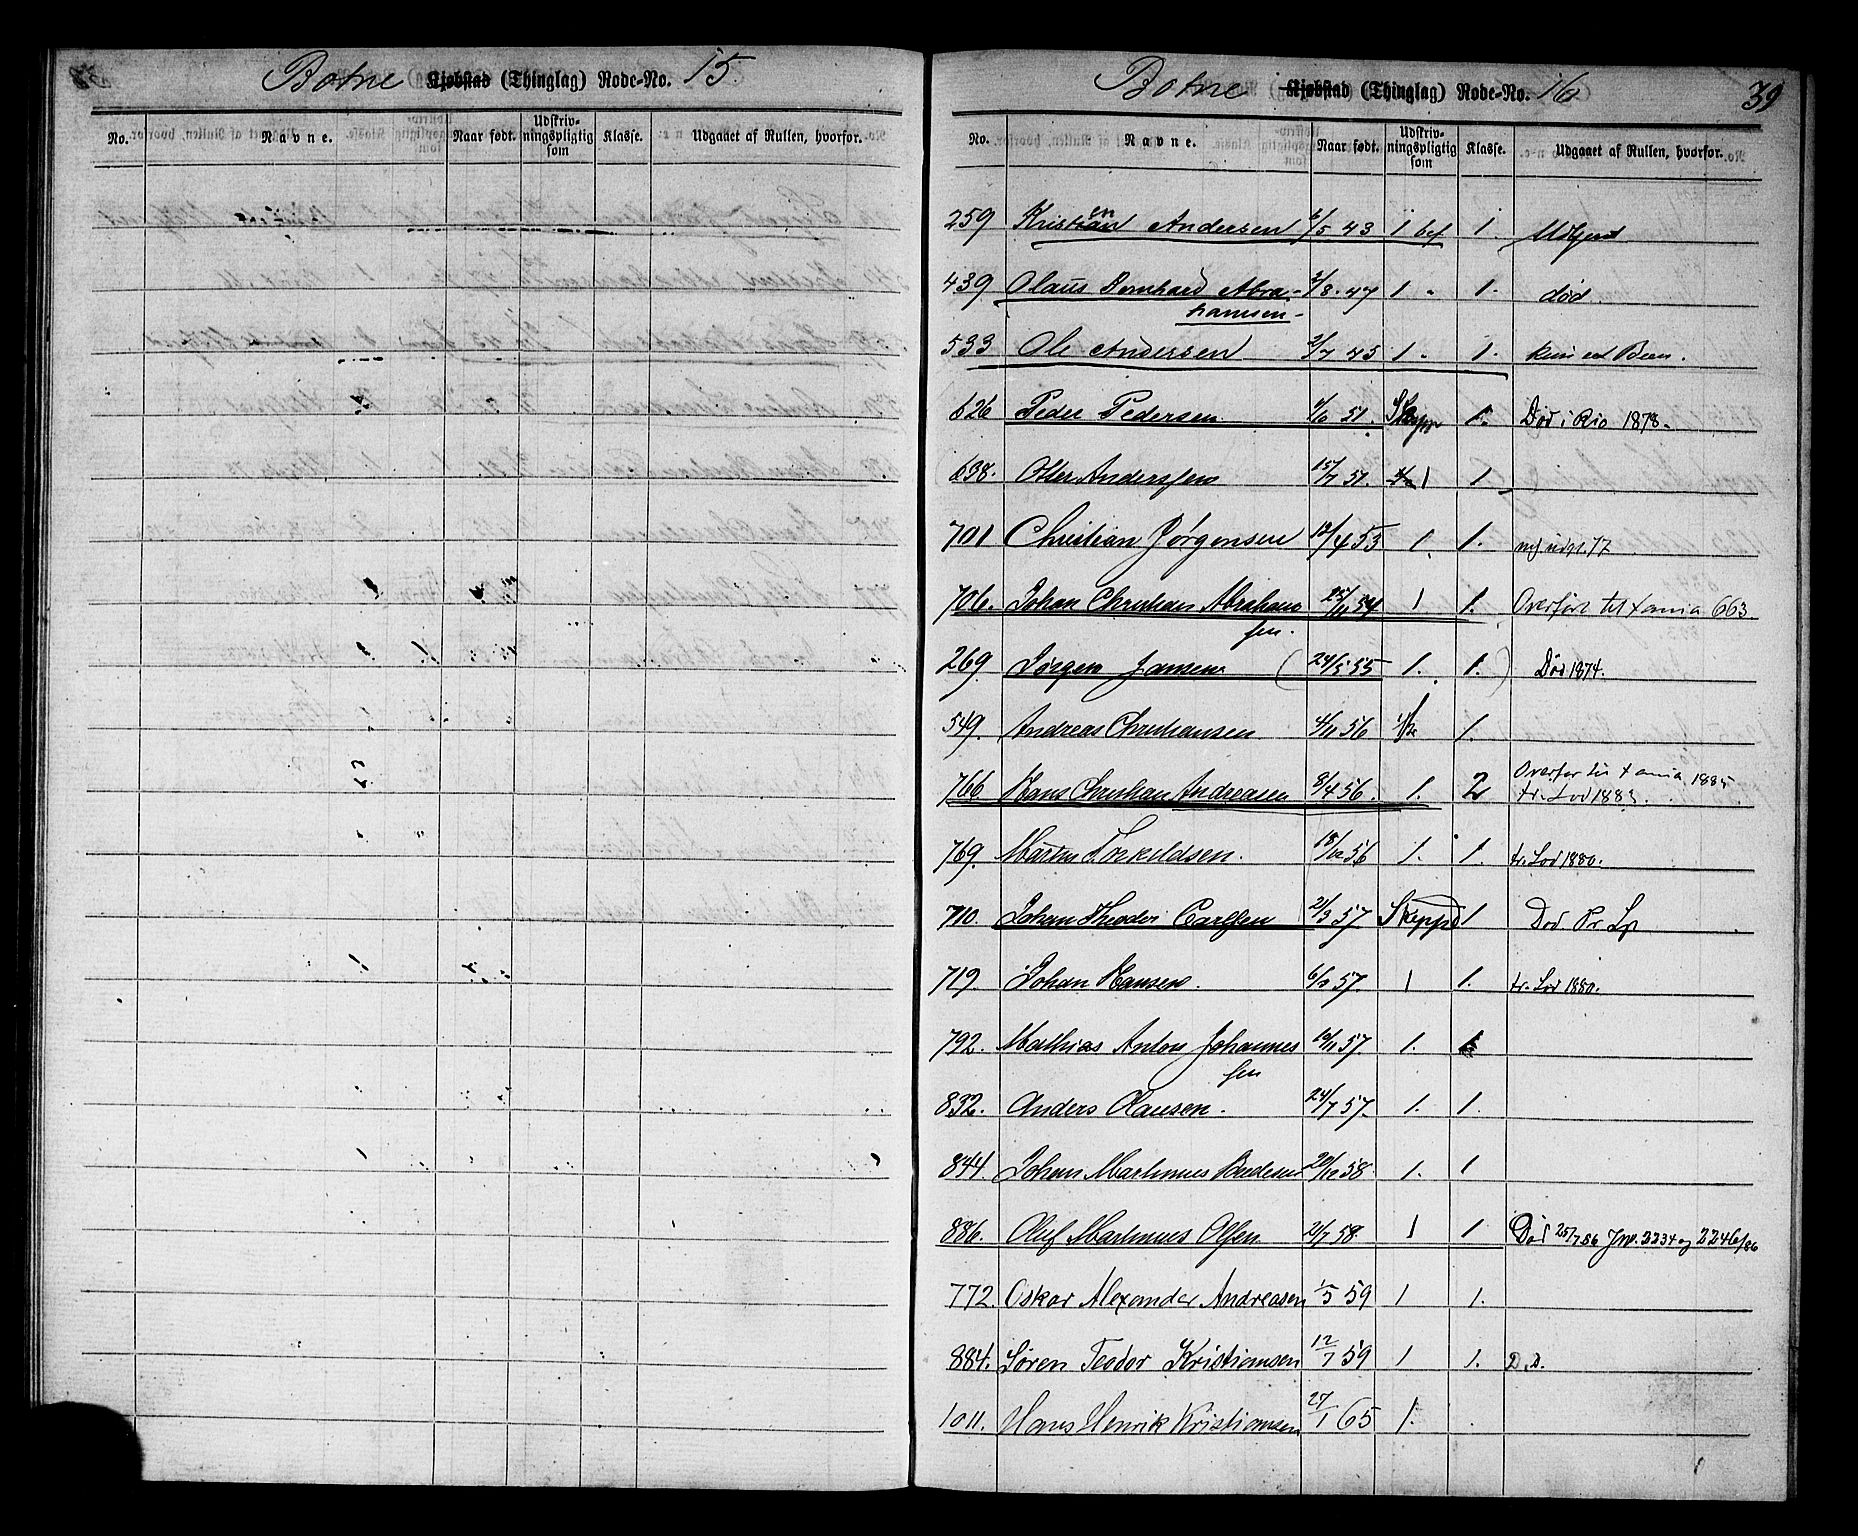 Botne Kjøbstad (Thinglag) Rode-No. 15.
No. Navne. Naar født. Udskriv-ningspligtig som Klasse. Udgaaet af Rullen, hvorfor.
Botne Kjøbstad (Thinglag) Rode-No. 16
39
No. Navne. Naar født. Udskriv-ningspligtig som Klasse. Udgaaet af Rullen, hvorfor.
259 Kristian en Andersen /5 43 1 bef 1. Udgaaet
439 Olaus Bernhard Abra- /8.47 1 " 1. død
hamsen-
533 Ole Andersen 2/7 45 1 " 1. kun et Been.
626 Peder Pedersen 51. 1. Død i Rio 1878.
638. Otter Anderssen 15/7 51. 1 1
701 Christian Jørgensen 12/4 53 1. 1. 77
706. Johan Christian Abraham 25/11 54 1 1. Overført til Xania 663.
sen.
269. Jørgen Jansen (24/5 55 1. 1.) Død 1874.
549. Andreas Christiansen 4/11 56 1.
766 Hans Christian Andreasen 8/4 56. 1. 2 Overfør til Xania 1885
fr. Lod 1883.
769. Martin Torkeldsen. 18/12 56 1. 1. fr. Lod 1880.
710. Johan Theodor Carlsen 21/3 57 Skippd 1 Død
719. Johan Hansen. 57. 1 1. fr. Lod 1880.
792. Mathias Anton Johannes 19/11 57. 1. 1
sen
832. Anders Clausen. 24/7 57. 1. 1.
844. Johan Martinius 20/12 58. 1. 1
886. Oluf Martinius Olsen 21/7 58. 1 1. Død 25/7 86 Jnr. 2234 og 2246/86
772. Oskar Alexander Andreasen 1/5 59 1 1.
884. Søren Teodor Kristiansen 12/7 59 1 1. D.D.
1011. Hans Henrik Kristiansen 27/1 65 1.